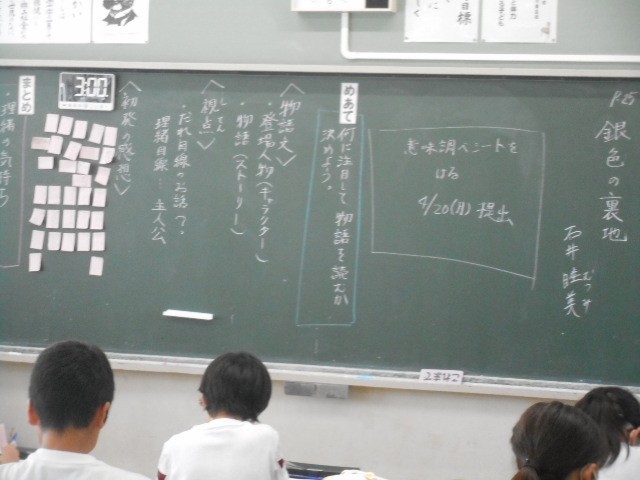 P25
銀色の裏地
石井睦美
むつみ
意味調べシートを
はる
4/20(月)提出
めあて
何に注目して物語を読むか
決めよう。
〈物語文〉
・登場人物(キャラクター)
・物語(ストーリー)
〈視点〉
してん
・だれ目線のお話?
理緒目線…主人公
〈初発の感想〉
3:00
まとめ
・理緒の気持ち
目標